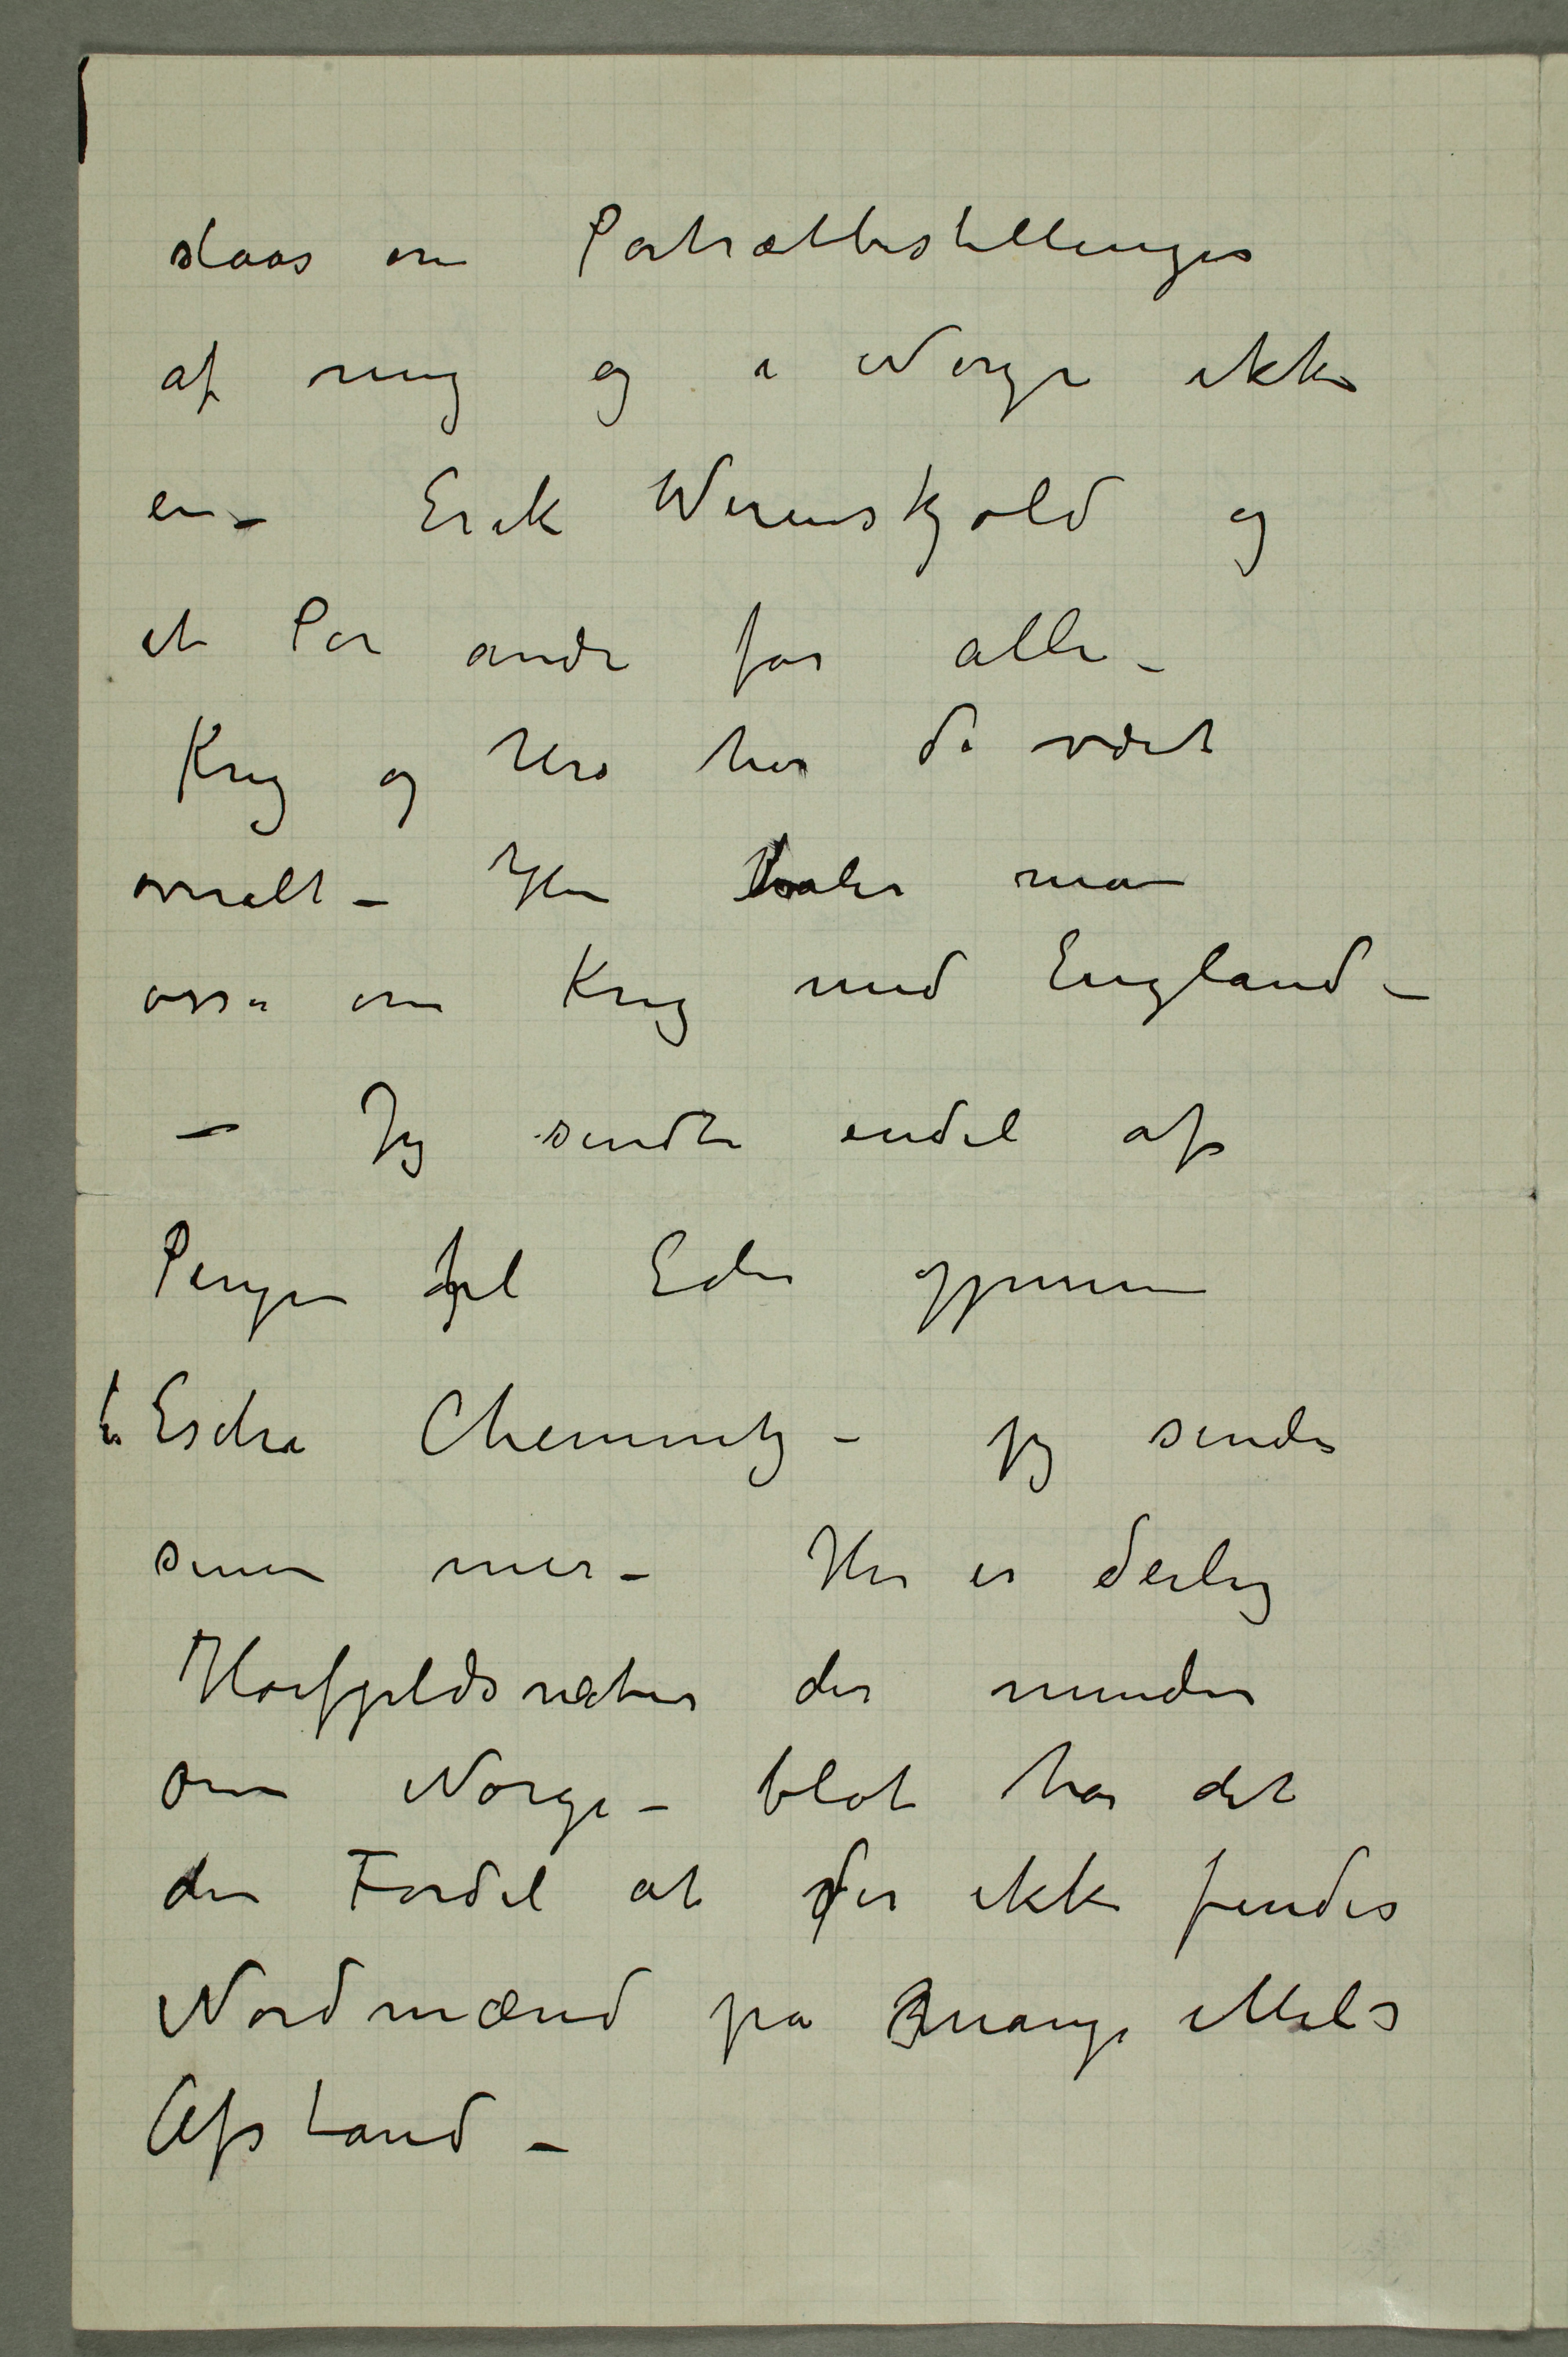 slaas om Portrætbestillinger
af mig og i Norge ikke
en – Erik Werenskjold og
et Par andre får alle –
Krig og Uro har da været
overalt – Her taler man
osså om Krig med England –
– Jeg sendte endel af
Pengene til Eder gjennem
Esche Chemnitz – jeg sender
senere mer – Her er deilig
Høifjeldsnatur der minder
om Norge – blot har det
den Fordel at der ikke findes
Nordmænd på mange Mils
Afstand –